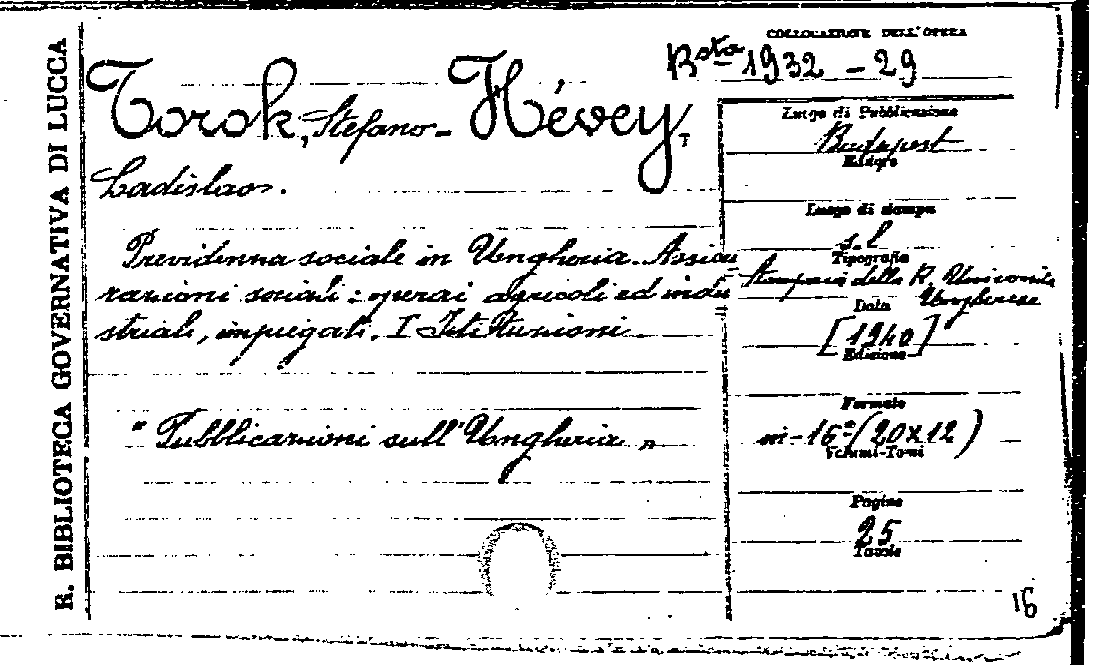 R. BIBLIOTECA GOVERNATIVA DI LUCCA
COLLOCAZIONE DELL'OPERA
Bsta 1932 - 29
Torok, Stefano - Hévey,
Ladislao.
Previdenza sociale in Ungheria. Assicu
razioni sociali: operai agricoli ed indu
striali, impiegati. I Istituzioni
"Pubblicazioni sull'Ungheria"
Luogo di Pubblicazione
Budapest
Editore
Luogo di stampa
s.l
Tipografia
Stamperia della R. Università
Ungherese
Data
[1940]
Edizione
Formato
in-16° (20x12)
Volumi-Tomi
Pagine
25
Tavole
16